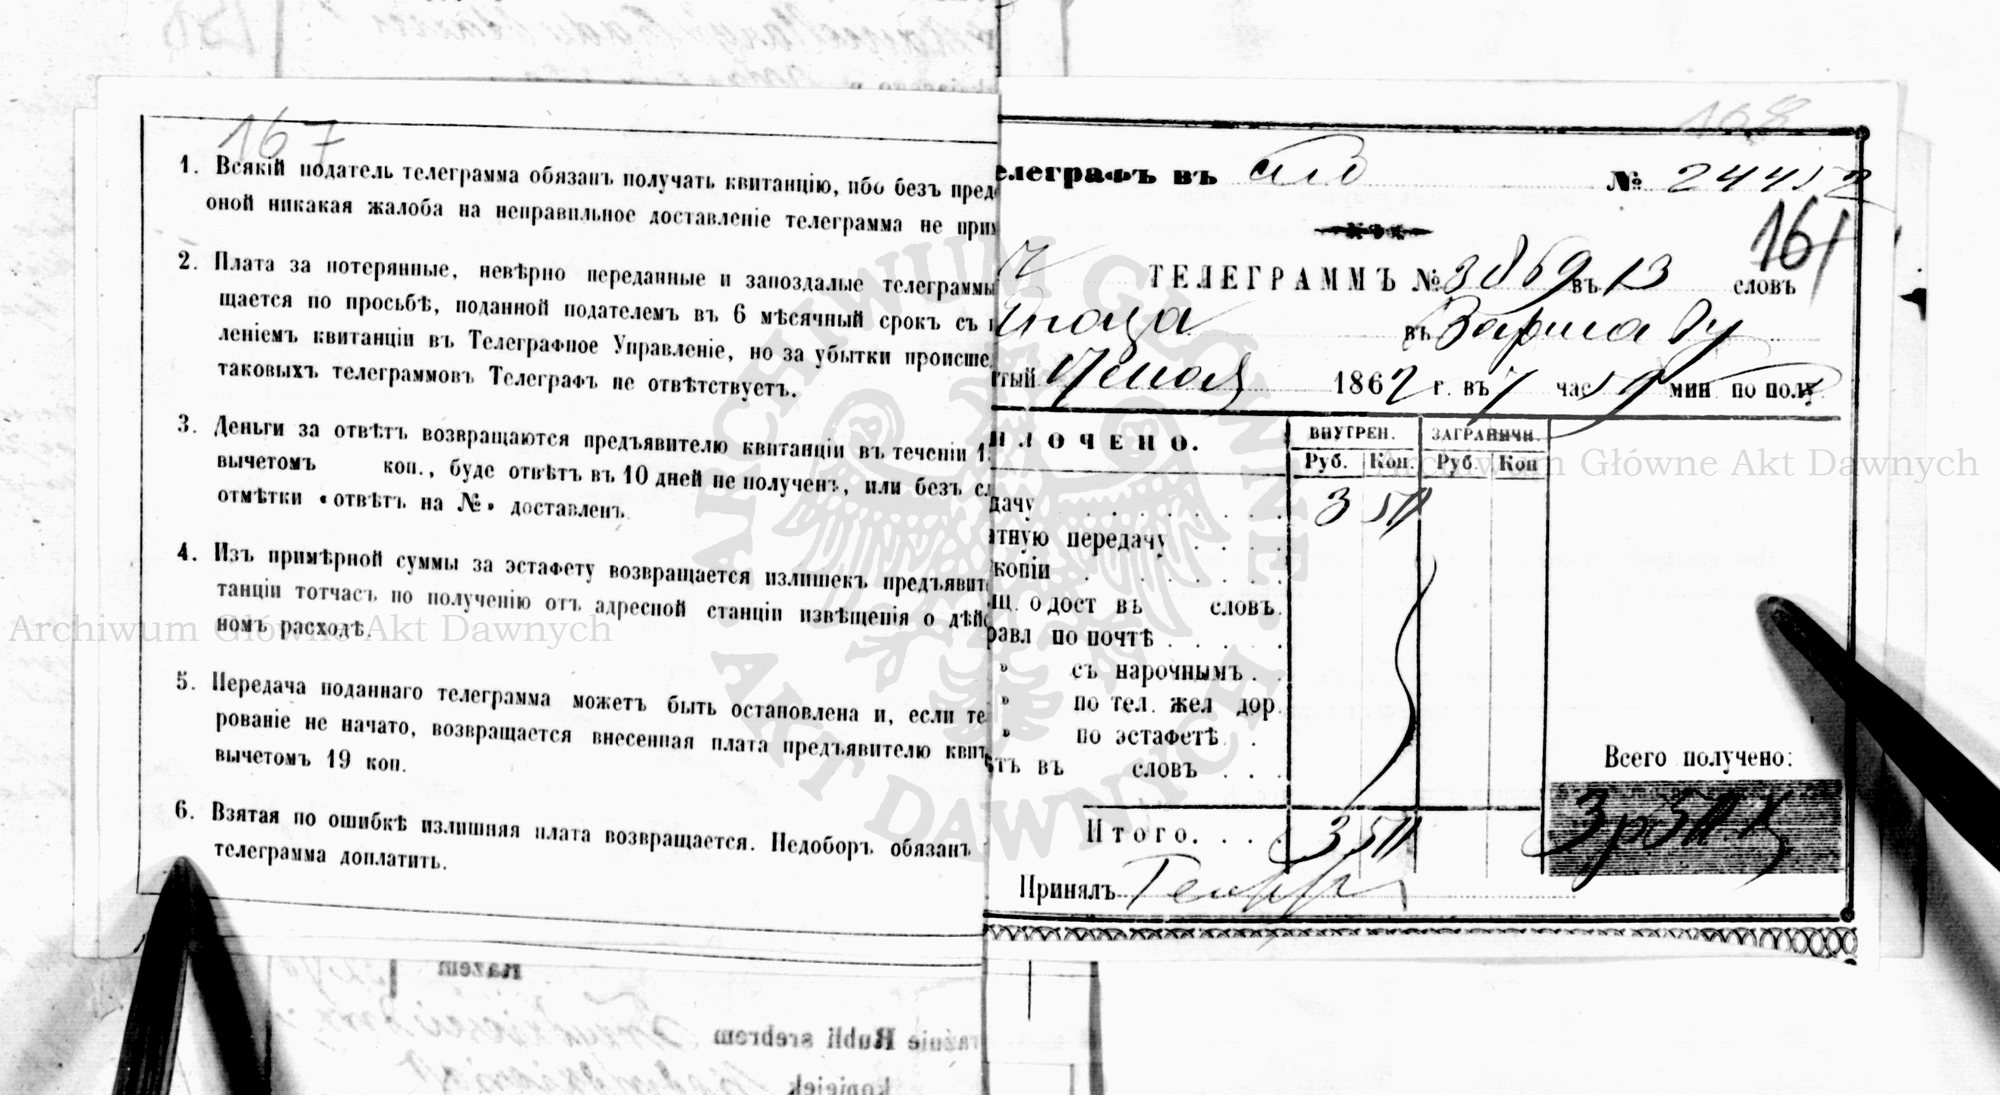 167
1. Всякій податель телеграмма обязанъ получать квитанцію, ибо безъ пред
оной никакая жалоба на неправильное доставленіе телеграмма не при
2. Плата за потерянные, невѣрно переданные и запоздалые телеграммы
щается по просьбѣ, поданной подателемъ въ 6 мѣсячный срокъ съ
леніемъ квитанціи въ Телеграфное Управленіе, но за убытки происше
таковыхъ телеграммовъ Телеграфъ не отвѣтствуетъ.
3. Деньги за отвѣтъ возвращаются предъявителю квитанціи въ теченіи 1
вычетомъ коп., буде отвѣтъ въ 10 дней не полученъ, или безъ сл
отмѣтки «отвѣтъ на №» доставленъ.
4. Изъ примѣрной суммы за эстафету возвращается излишекъ предъявит
танціи тотчасъ по полученію отъ адресной станціи извѣщенія о дѣй
номъ расходѣ.
5. Передача поданнаго телеграмма можетъ быть остановлена и, если те
рованіе не начато, возвращается внесенная плата предъявителю кви
вычетомъ 19 коп.
6. Взятая по ошибкѣ излишняя плата возвращается. Недоборъ обязанъ
телеграмма доплатить.
168
елеграфъ въ № 24452
161
ТЕЛЕГРАММЪ № 3869 въ 13 словъ
въ Варшаву
тый 17 мая 1862 г. въ 7 час мин по полу
ПЛОЧЕНО. ВНУТРЕН. ЗАГРАНИЧН.
Руб. Коп. Руб. Коп
дачу 3
атную передачу
копіи
щ. о дост въ словъ.
равл по почтѣ
» съ нарочнымъ
» по тел. жел дор.
» по эстафетѣ
ть въ словъ
Всего получено:
Итого.
Принялъ
Archiwum Główne Akt Dawnych
Archiwum Główne Akt Dawnych
ARCHIWUM GŁÓWNE AKT DAWNYCH
razem
raźnie Rubli srebrem
kopiejek